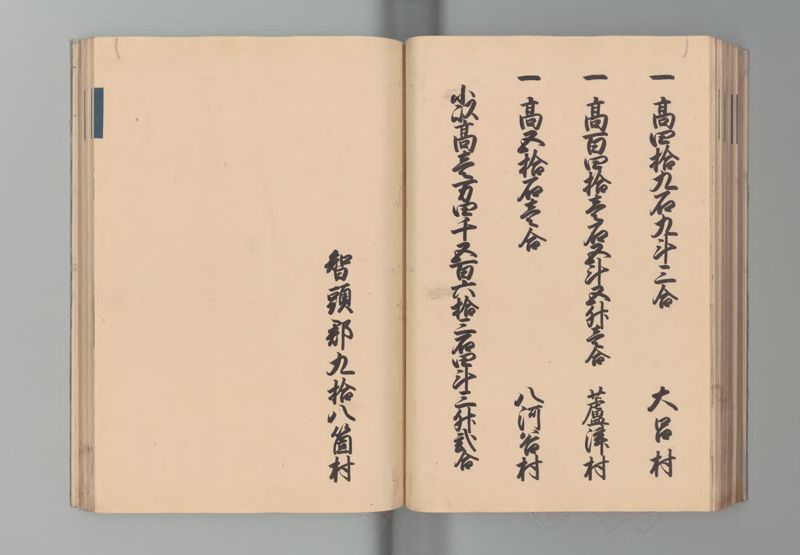 一 高四拾九石九斗三合 大呂村
一 高百四拾壱石五斗五升壱合 蘆津村
一 高五拾石壱合 八河谷村
小以高壱万四千五百六拾三石四斗三升弐合
智頭郡九拾八箇村